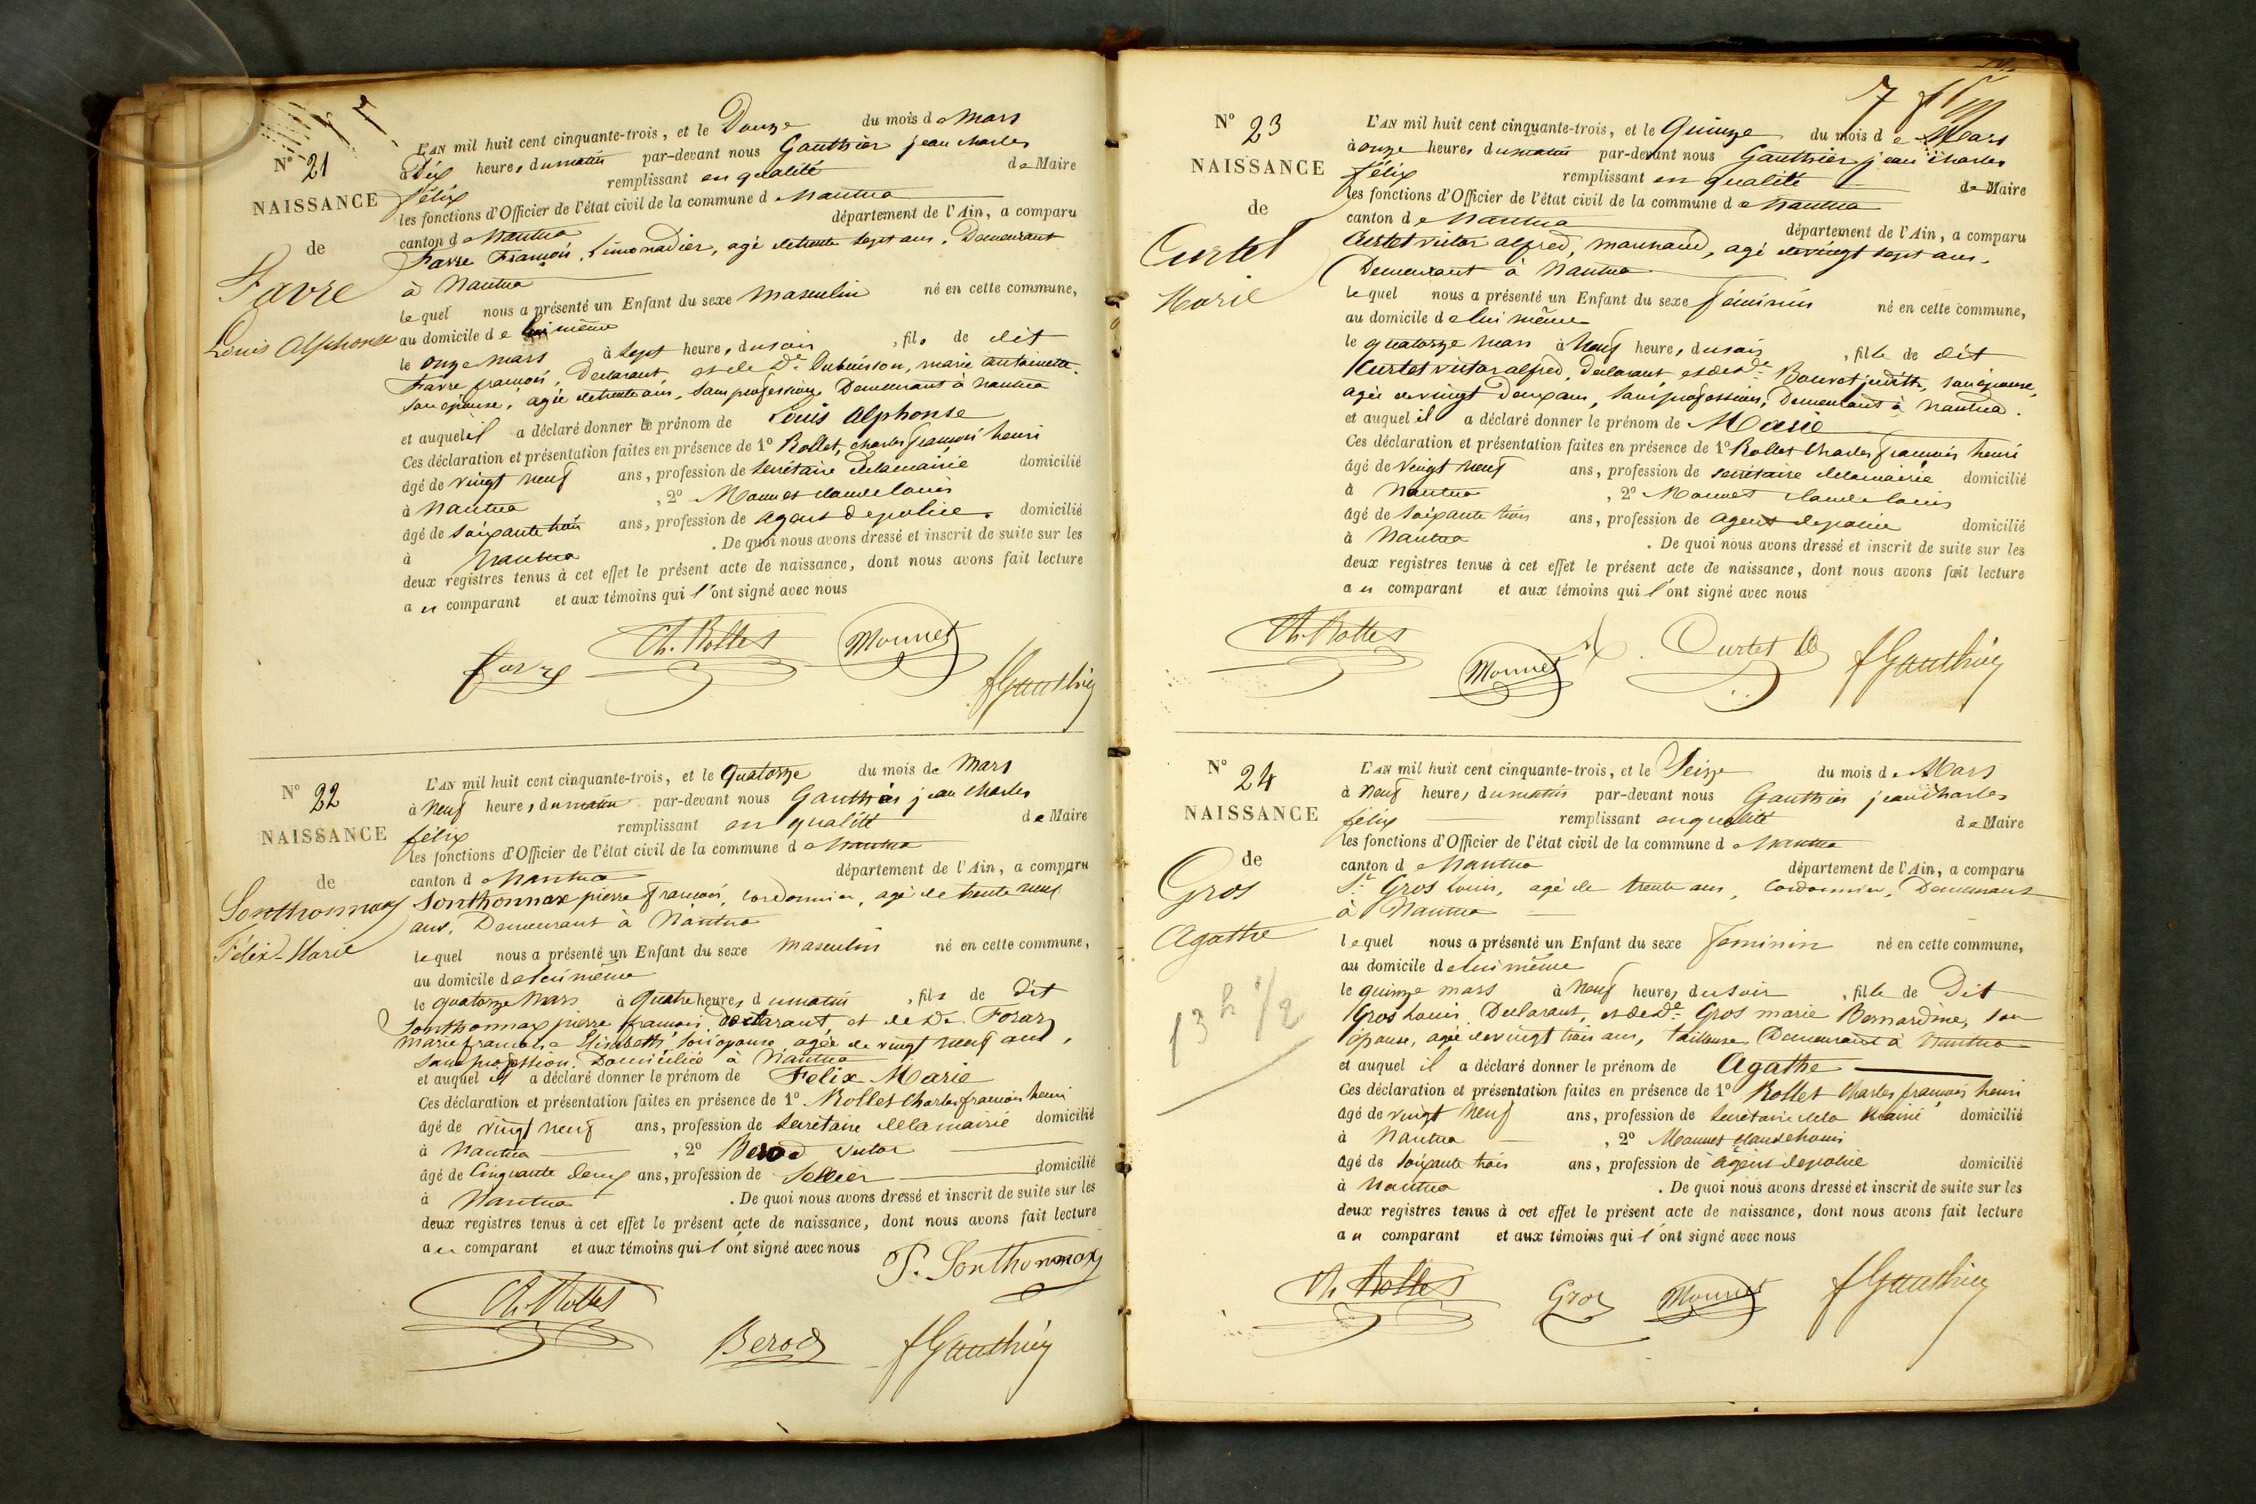 N° 21
NAISSANCE
de
Favre
Louis Alphonse
L'AN mil huit cent cinquante-trois, et le Douze du mois de Mars
à Dix heures du matin par-devant nous Gauthier jean charles
félix remplissant en qualité de Maire
les fonctions d'Officier de l'état civil de la commune de Nantua
canton de Nantua département de l'Ain, a comparu
Favre François, Limonadier, agé de trente sept ans, Demeurant
à Nantua
lequel nous a présenté un Enfant du sexe masculin né en cette commune,
au domicile de lui même
le onze mars à sept heures du soir, fils de dit
Favre françois, Declarant et de De Dubuisson, marie antoinette
son épouse, agée de trente ans, sans profession, Demeurant à Nantua
et auquel il a déclaré donner le prénom de Louis Alphonse
Ces déclaration et présentation faites en présence de 1° Rollet, charles françois henri
âgé de vingt neuf ans, profession de secrétaire de la mairie domicilié
à Nantua, 2° Monnet claude louis
âgé de soixante trois ans, profession de agent de police domicilié
à Nantua. De quoi nous avons dressé et inscrit de suite sur les
deux registres tenus à cet effet le présent acte de naissance, dont nous avons fait lecture
au comparant et aux témoins qui l'ont signé avec nous
Favre Ch. Rollet Monnet fGauthier
N° 22
NAISSANCE
de
Sonthonnax
Félix-Marie
L'AN mil huit cent cinquante-trois, et le Quatorze du mois de Mars
à Neuf heures du matin par-devant nous Gauthier jean charles
félix remplissant en qualité de Maire
les fonctions d'Officier de l'état civil de la commune de Nantua
canton de Nantua département de l'Ain, a comparu
Sonthonnax pierre françois, cordonnier, agé de trente neuf
ans, Demeurant à Nantua
lequel nous a présenté un Enfant du sexe masculin né en cette commune,
au domicile de lui même
le quatorze Mars à Quatre heures du matin, fils de Dit
Sonthonnax pierre françois, Declarant, et de De Foray
marie francoise Elisabeth, son épouse, agée de vingt neuf ans,
sans profession, Domiciliée à Nantua
et auquel il a déclaré donner le prénom de Felix Marie
Ces déclaration et présentation faites en présence de 1° Rollet Charles francois henri
âgé de vingt neuf ans, profession de secrétaire de la mairie domicilié
à Nantua, 2° Berod victor
âgé de Cinquante deux ans, profession de Sellier domicilié
à Nantua. De quoi nous avons dressé et inscrit de suite sur les
deux registres tenus à cet effet le présent acte de naissance, dont nous avons fait lecture
au comparant et aux témoins qui l'ont signé avec nous
P. Sonthonnax
Ch. Rollet Berod fGauthier
7
N° 23
NAISSANCE
de
Curtet
Marie
L'AN mil huit cent cinquante-trois, et le Quinze du mois de Mars
à onze heures du matin par-devant nous Gauthier jean charles
félix remplissant en qualité de Maire
les fonctions d'Officier de l'état civil de la commune de Nantua
canton de Nantua département de l'Ain, a comparu
Curtet victor alfred, marchand, agé de vingt sept ans,
Demeurant à Nantua
lequel nous a présenté un Enfant du sexe féminin né en cette commune,
au domicile de lui même
le quatorze mars à Neuf heures du soir, fille de dit
Curtet victor alfred, declarant et de De Bouvet judith, son épouse,
agée de vingt deux ans, sans profession, Demeurant à Nantua.
et auquel il a déclaré donner le prénom de Marie
Ces déclaration et présentation faites en présence de 1° Rollet Charles françois henri
âgé de vingt neuf ans, profession de secrétaire de la mairie domicilié
à Nantua, 2° Monnet claude louis
âgé de soixante trois ans, profession de agent de police domicilié
à Nantua. De quoi nous avons dressé et inscrit de suite sur les
deux registres tenus à cet effet le présent acte de naissance, dont nous avons fait lecture
au comparant et aux témoins qui l'ont signé avec nous
Ch. Rollet Monnet Curtet fGauthier
N° 24
NAISSANCE
de
Gros
Agathe
13 h 1/2
L'AN mil huit cent cinquante-trois, et le Seize du mois de Mars
à neuf heures du matin par-devant nous Gauthier jean Charles
félix remplissant en qualité de Maire
les fonctions d'Officier de l'état civil de la commune de Nantua
canton de Nantua département de l'Ain, a comparu
Sr Gros Louis, agé de trente ans, Cordonnier, Demeurant
à Nantua
lequel nous a présenté un Enfant du sexe feminin né en cette commune,
au domicile de lui même
le quinze mars à Neuf heures du soir, fille de Dit
Gros Louis, Declarant, et de De Gros marie Bernardine, son
épouse, agée de vingt trois ans, tailleuse Demeurant à Nantua
et auquel il a déclaré donner le prénom de Agathe
Ces déclaration et présentation faites en présence de 1° Rollet Charles françois henri
âgé de vingt neuf ans, profession de secretaire de la Mairie domicilié
à Nantua, 2° Monnet claude louis
âgé de soixante trois ans, profession de agent de police domicilié
à Nantua. De quoi nous avons dressé et inscrit de suite sur les
deux registres tenus à cet effet le présent acte de naissance, dont nous avons fait lecture
au comparant et aux témoins qui l'ont signé avec nous
Ch. Rollet Gros Monnet fGauthier